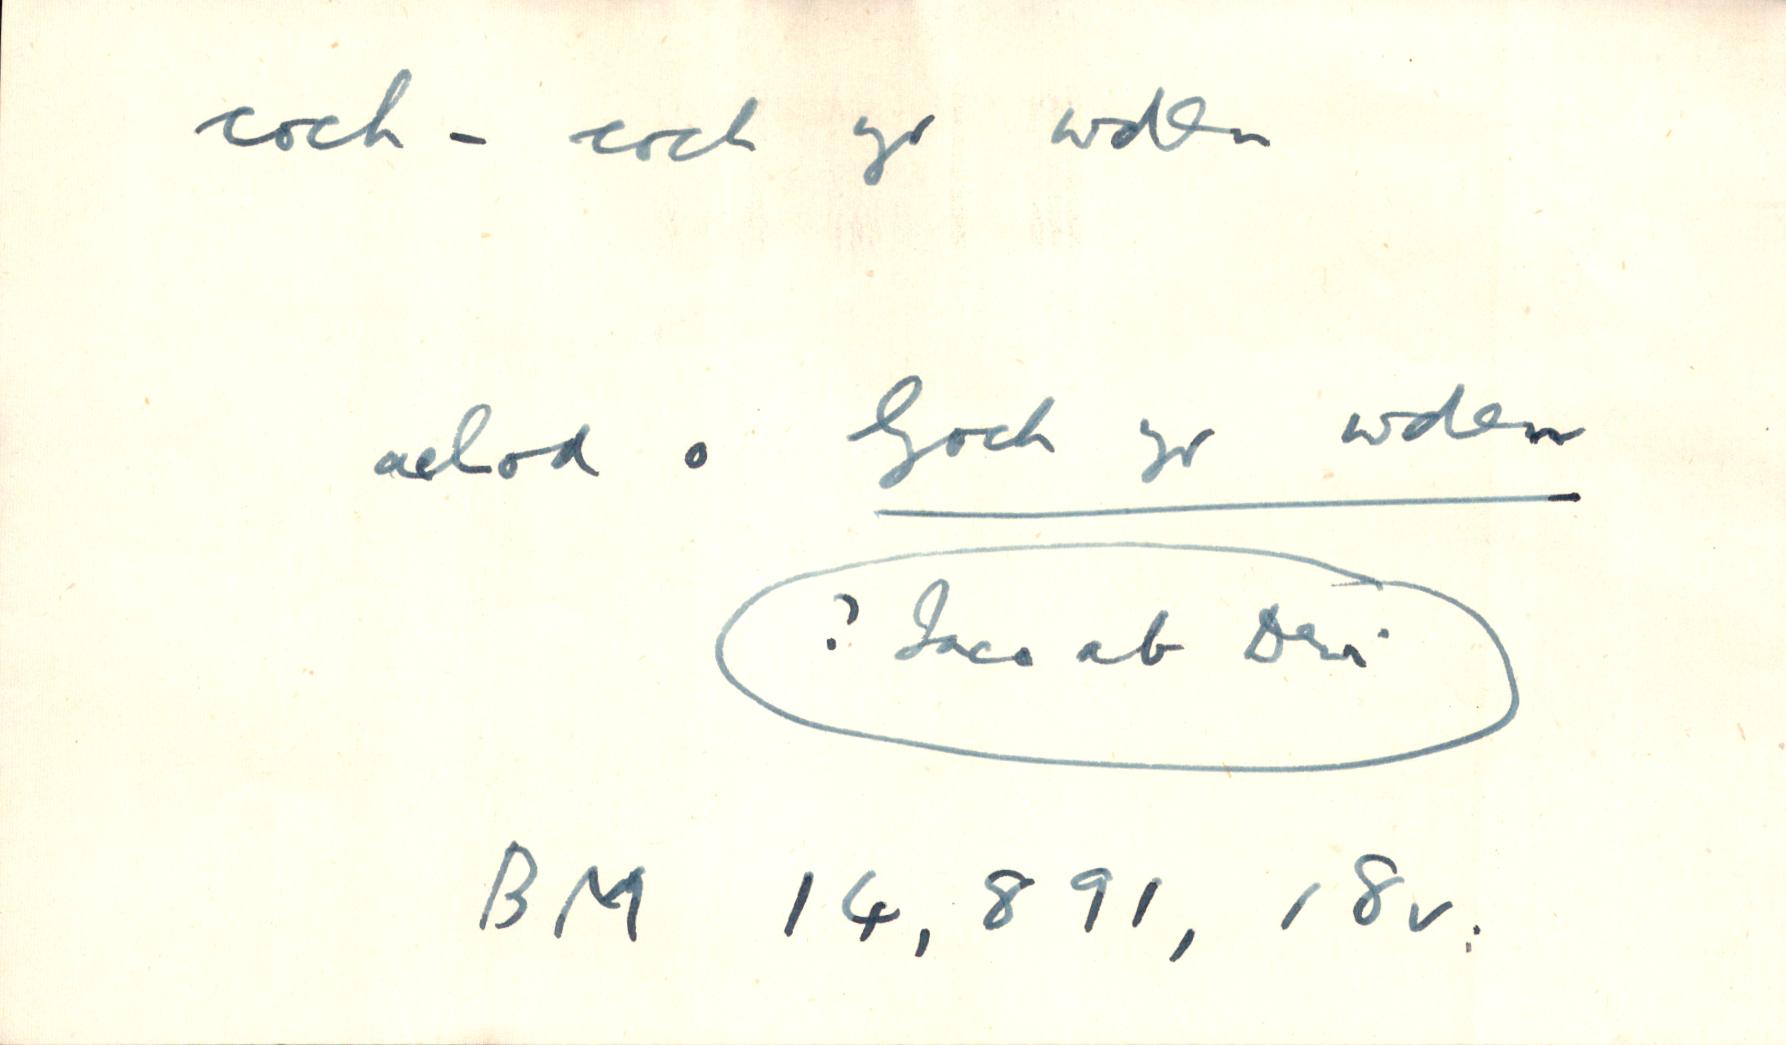 coch - coch yr wden
aelod o Goch yr wden
? Iaco ab Dewi
BM 14,891, 18v.